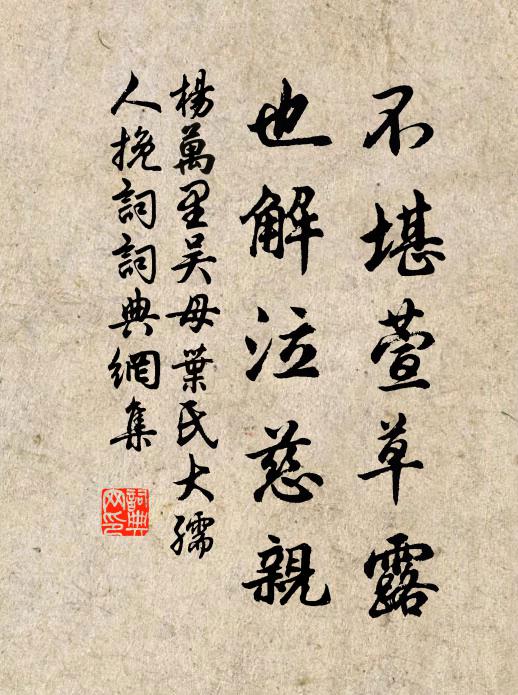 不堪萱草露
也解泣慈親
楊萬里吳母葉氏大孺
人挽詞詞典網集
詞典网印